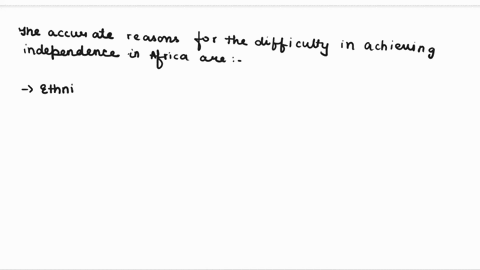 The accurate reasons for the difficulty in achieving
independence in Africa are:-
-> Ethni